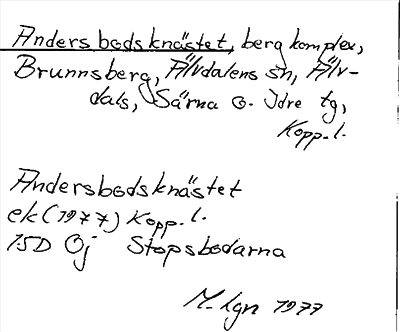 Andersbodsknästet, bergkomplex,
Brunnsberg, Älvdalens sn, Älv-
dals, Särna o. Idre tg,
Kopp. l.
Andersbodsknästet
ek (1977) Kopp. l.
15D 0j Stopsbodarna
M-lgn 1977